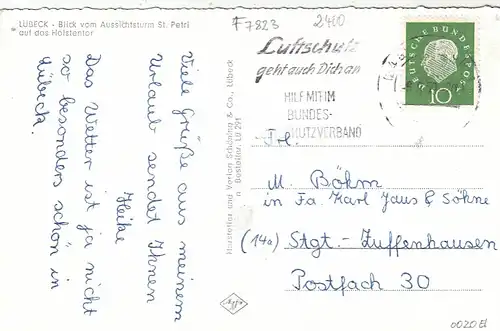 LÜBECK - Blick vom Aussichtsturm St. Petri
auf das Holstentor
F7823
2400
Luftschutz
geht auch Dich an
HILF MIT IM
BUNDES-
LUFTSCHUTZVERBAND
DEUTSCHE BUNDESPOST
10
Viele Grüße aus meinem
Urlaub sendet Ihnen
Heike
Das Wetter ist ja nicht
so besonders schön in
Lübeck.
Hersteller und Verlag Schöning & Co., Lübeck
Bestellnr. Lü 291
Agfa
Frl.
M. Böhm
in Fa. Karl Jaus & Söhne
(14a) Stgt.-Zuffenhausen
Postfach 30
0020El